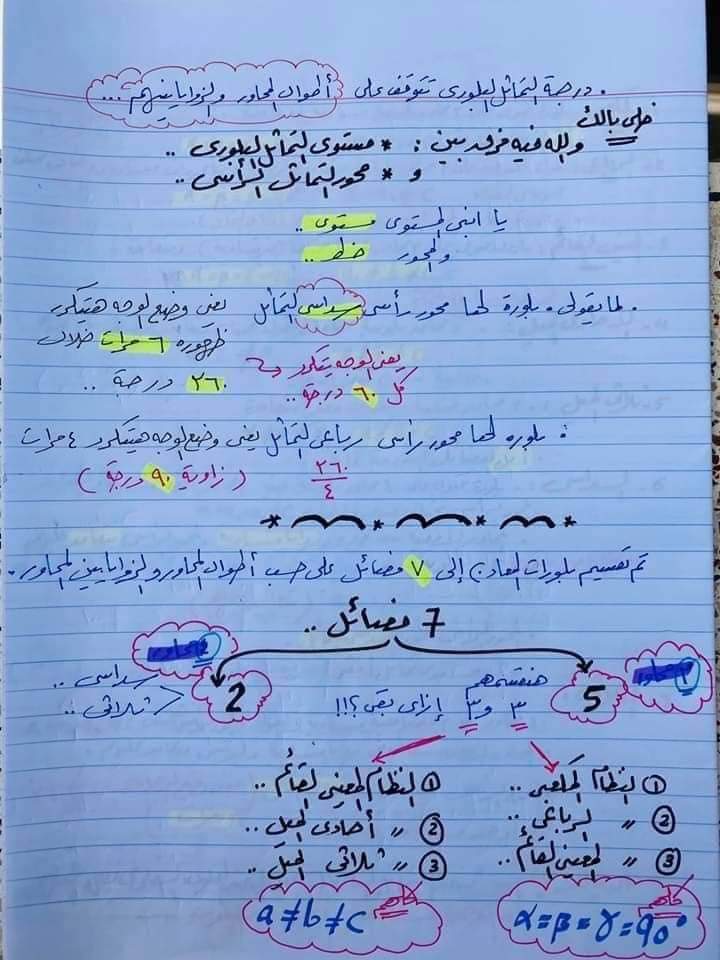 . درجة التماثل البلورى تتوقف على أطوال المحاور والزوايا بينهم ...
خلى بالك
والله فيه فرق بين : * مستوى التماثل البلورى ..
و * محور التماثل الرأسى ..
يا ابنى المستوى مستوى ..
والمحور خط ..
. لما يقولى بلورة لها محور رأسى سداسى التماثل يعنى وضع الوجه هيتكرر
ظهوره ٦ مرات خلال
٣٦٠ درجة ..
يعنى الوجه يتكرر
كل ٦٠ درجة ..
بلوره لها محور رأسى رباعى التماثل يعنى وضع الوجه هيتكرر ٤ مرات
٣٦٠
٤
( زاوية ٩٠ درجة )
تم تقسيم بلورات المعادن إلى ٧ فصائل على حسب أطوال المحاور والزوايا بين المحاور .
7 فصائل ..
٣ محاور
5
هنقسمهم
٣ و ٣ إزاى بقى ؟!!
٤ محاور
2
سداسى ..
ثلاثى ..
① النظام المكعبى ..
② " الرباعى ..
③ " المعينى القائم ..
خلى
α = β = γ = 90°
① النظام المعينى القائم ..
② " أحادى الميل ..
③ " ثلاثى الميل ..
a ≠ b ≠ c